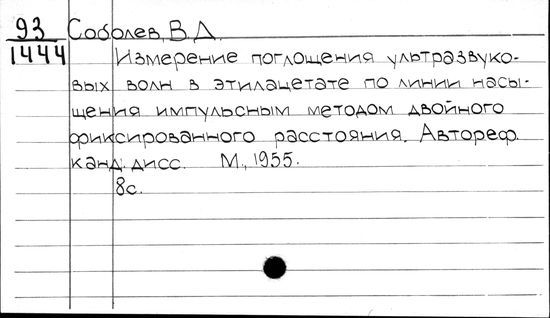 93 Соболев, В.Д.
1444 Измерение поглощения ультразвуко-
вых волн в этилацетате по линии насы-
щения импульсным методом двойного
фиксированного расстояния. Автореф.
канд. дисс. М., 1955.
8с.